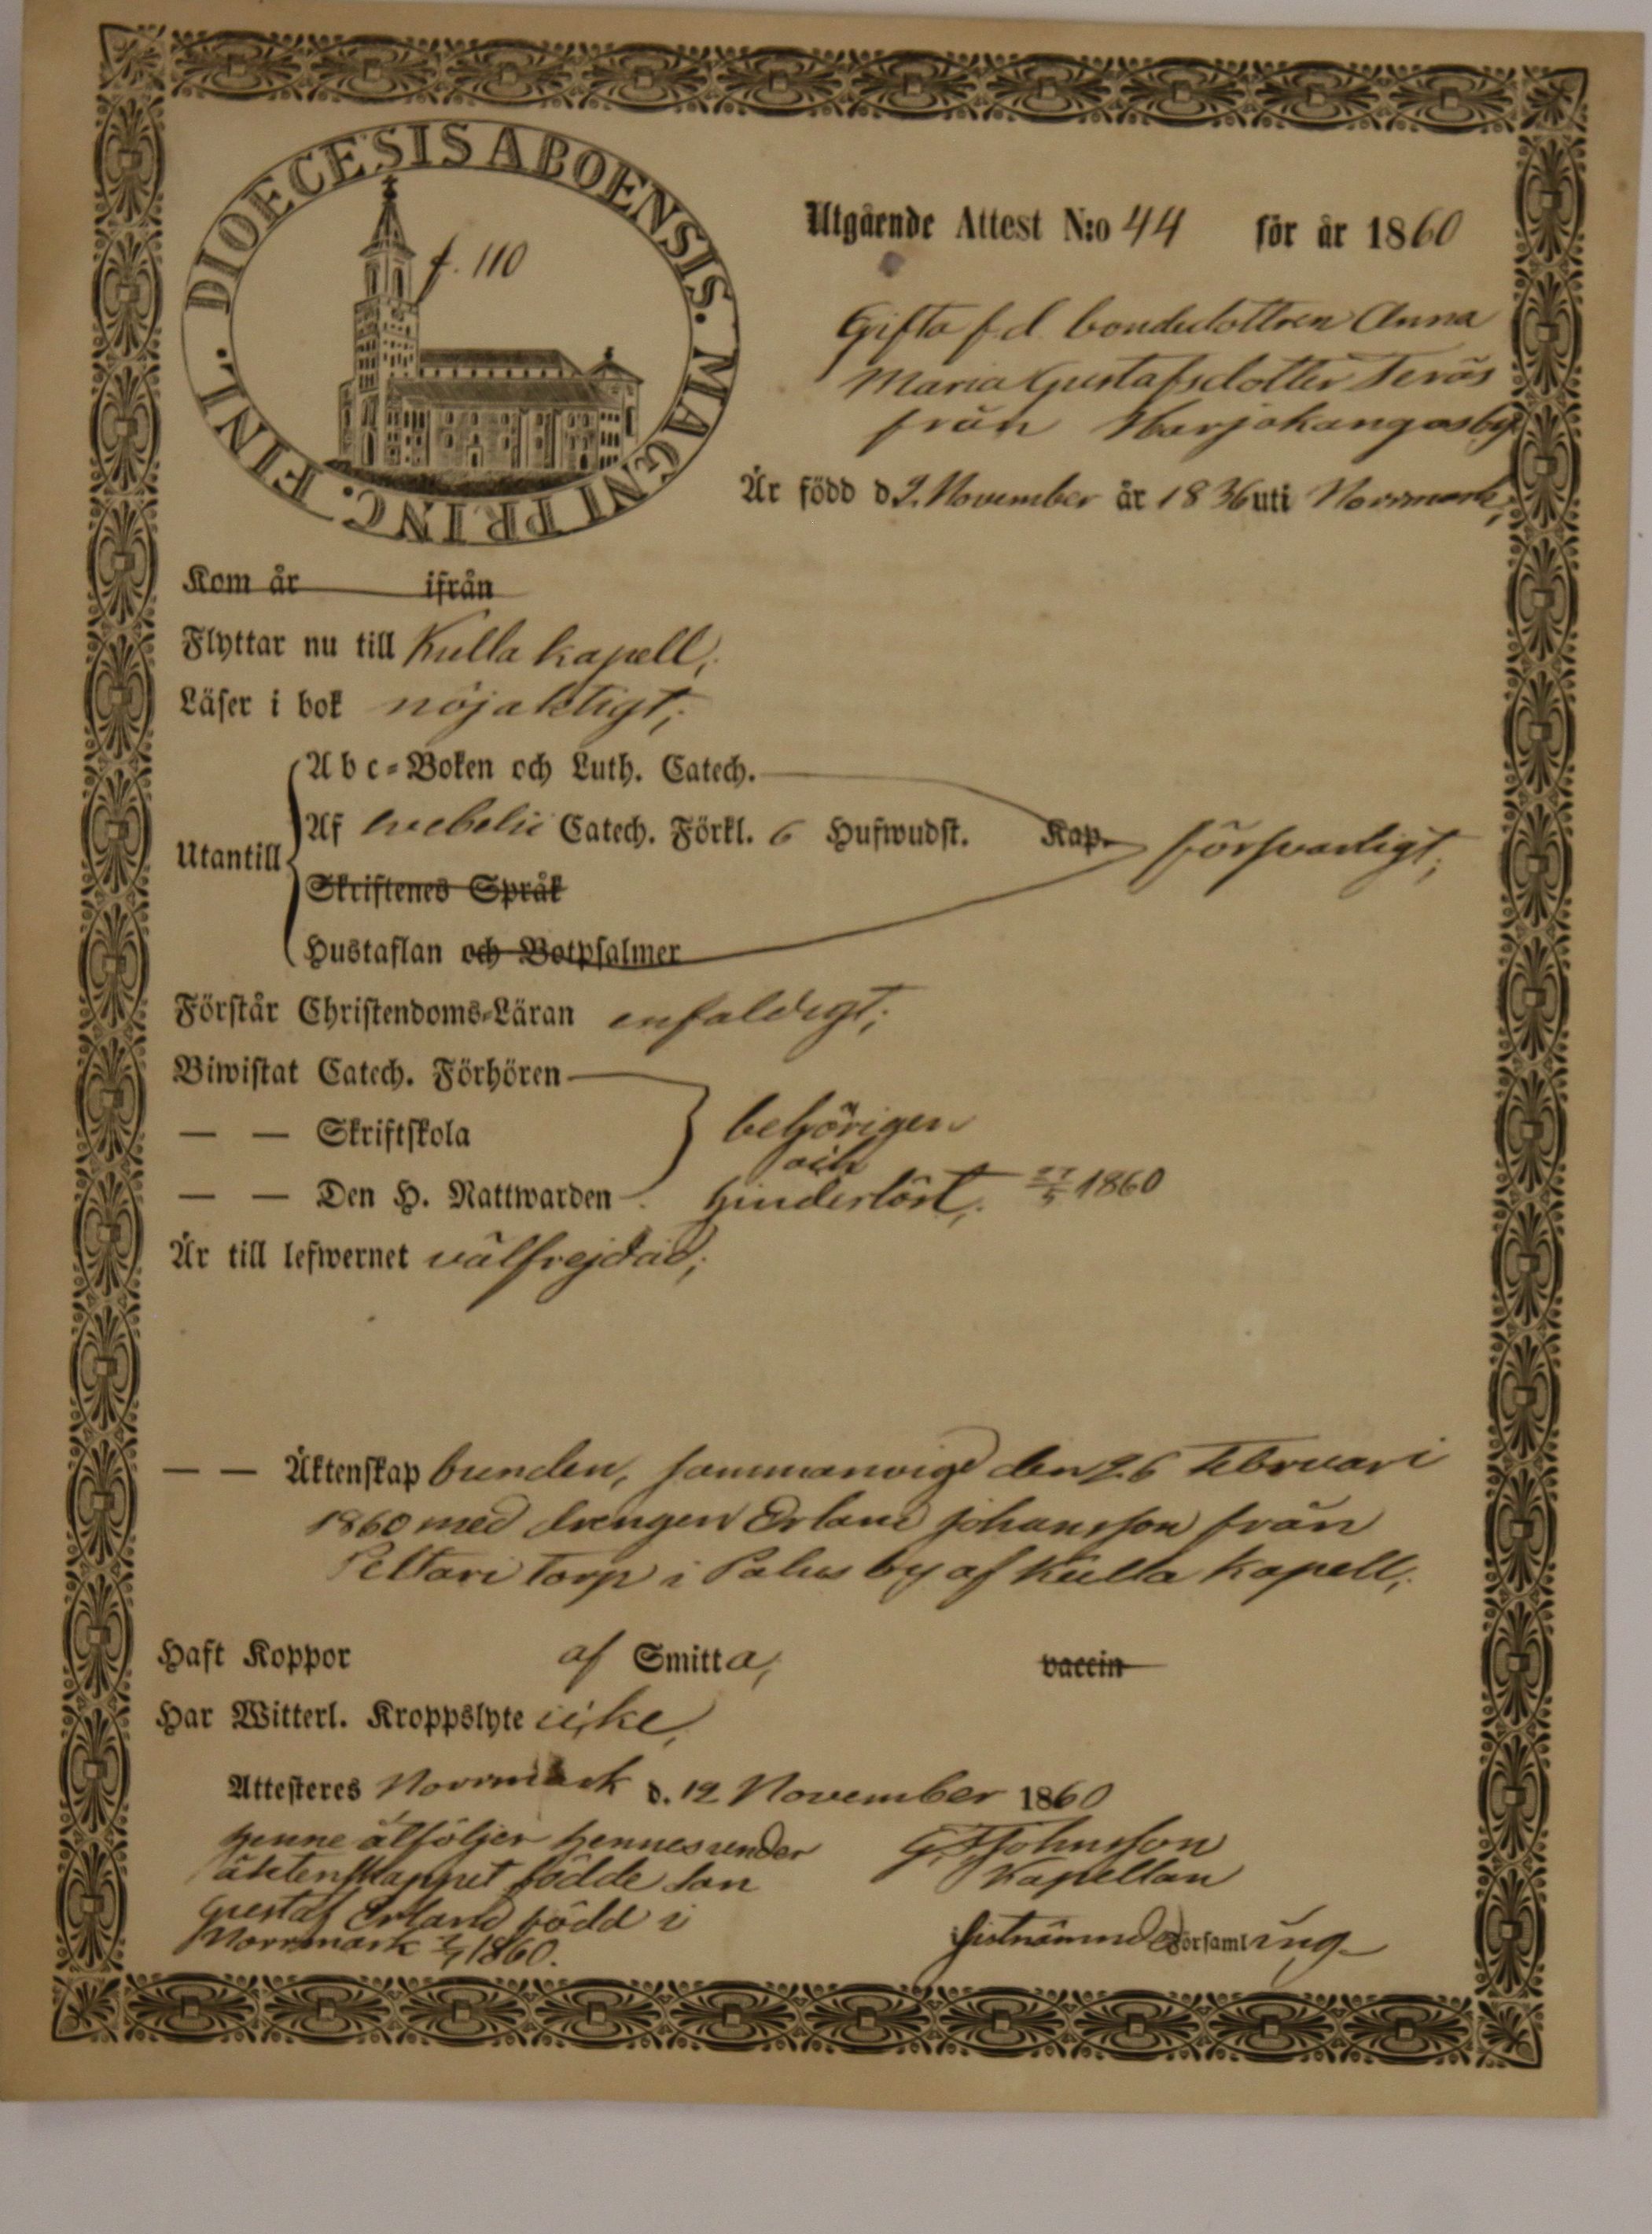 DIOECESIS ABOENSIS. MAGNI PRINC. FINL.
f. 110
Utgående Attest N:o 44 för år 1860
Gifta f.d. bondedottren Anna
Maria Gustafsdotter Teräs
från Harjakangasby
Är född d 2. November år 1836 uti Norrmark,
Kom år ifrån
Flyttar nu till Kulla kapell;
Läser i bok nöjaktigt;
Abc-Boken och Luth. Catech.
Af svebelii Catech. Förkl. 6 Hufwudst. Kap. försvarligt;
Utantill
Skriftenes Språk
Hustaflan och Botpsalmer
Förstår Christendoms-Läran enfaldigt;
Biwistat Catech. Förhören
— — Skriftskola behörigen
och
— — Den H. Nattwarden hinderlöst, 27/5 1860
Är till lefwernet välfrejdad;
— — Äktenskap bunden, sammanvigd den 26 Februari
1860 med drengen Erland Johansson från
Peltari Torp i Palus by af Kulla kapell;
Haft Koppor af Smitta, vaccin
Har Witterl. Kroppslyte icke,
Attesteres Norrmark d. 12 November 1860
henne åtföljer hennes under G. Johnsson
äktenskappet födde son Kapellan
Gustaf Erland född i
sistnämnde Församling
Norrmark 1860.